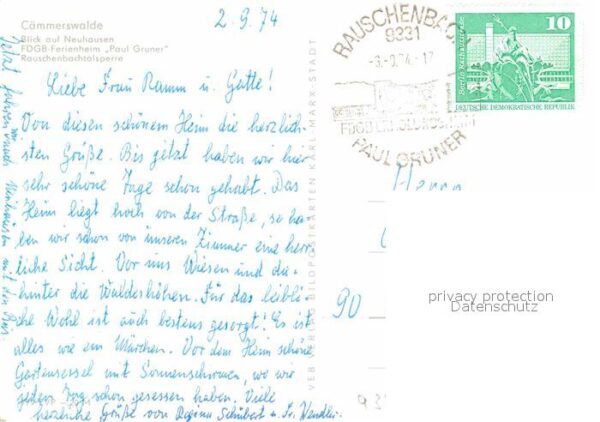 Cämmerswalde
Blick auf Neuhausen
FDGB-Ferienheim „Paul Gruner"
Rauschenbachtalsperre
2.9.74
Liebe Frau Ramm u. Gatte!
Von diesen schönem Heim die herzlich-
sten Grüße. Bis jetzt haben wir hier
sehr schöne Tage schon gehabt. Das
Heim liegt hoch von der Straße, so ha-
ben wir schon von unseren Zimmer eine herr-
liche Sicht. Vor uns Wiesen und da-
hinter die Waldeshöhen. Für das leibli-
che Wohl ist auch bestens gesorgt! Es ist
alles wie ein Märchen. Vor dem Heim schöne
Gartensessel mit Sonnenschirmen, wo wir
jeden Tag schon gesessen haben. Viele
herzliche Grüße von Regina Schubert u. Fr. Wendler.
Jetzt fahren wir nach Neuhausen mit den Bus
VEB BILDPOSTKARTEN KARL-MARX-STADT
RAUSCHENBACH
9331
74-17
FDGB ERHOLUNGSHEIM
PAUL GRUNER
10
DEUTSCHE DEMOKRATISCHE REPUBLIK
Herrn
90
privacy protection
Datenschutz
93